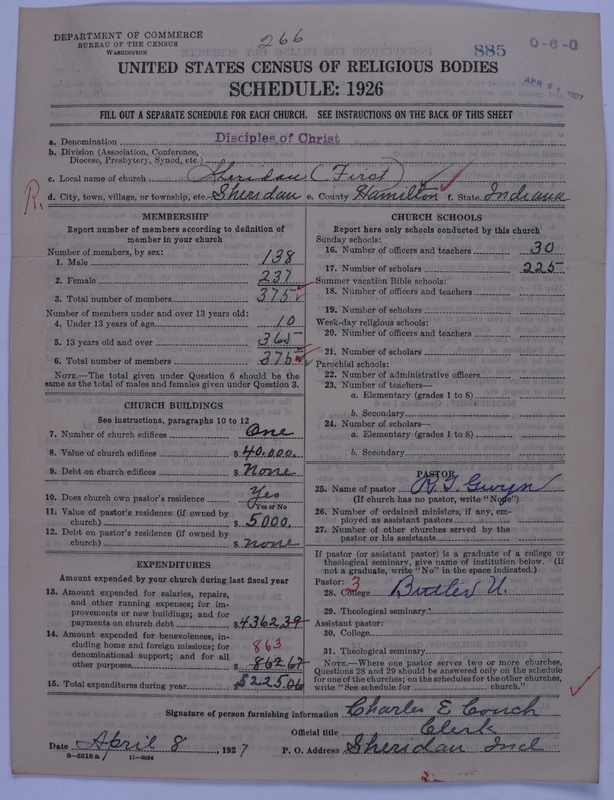 DEPARTMENT OF COMMERCE
BUREAU OF THE CENSUS
WASHINGTON
266
885
0-6-0
UNITED STATES CENSUS OF RELIGIOUS BODIES
SCHEDULE: 1926
FILL OUT A SEPARATE SCHEDULE FOR EACH CHURCH. SEE INSTRUCTIONS ON THE BACK OF THIS SHEET
a. Denomination Disciples of Christ
b. Division (Association, Conference,
Diocese, Presbytery, Synod, etc.)
c. Local name of church Sheridan (First)
R.
d. City, town, village, or township, etc. Sheridan e. County Hamilton f. State Indiana
MEMBERSHIP
Report number of members according to definition of
member in your church
Number of members, by sex:
1. Male 138
2. Female 237
3. Total number of members 375
Number of members under and over 13 years old:
4. Under 13 years of age 10
5. 13 years old and over 365
6. Total number of members 375
NOTE.—The total given under Question 6 should be the
same as the total of males and females given under Question 3.
CHURCH BUILDINGS
See instructions, paragraphs 10 to 12
7. Number of church edifices One
8. Value of church edifices $40,000.
9. Debt on church edifices $ None
10. Does church own pastor's residence Yes
Yes or No
11. Value of pastor's residence (if owned by
church) $ 5000.
12. Debt on pastor's residence (if owned by
church) $ none
EXPENDITURES
Amount expended by your church during last fiscal year
13. Amount expended for salaries, repairs,
and other running expenses; for im-
provements or new buildings; and for
payments on church debt $4362.39
14. Amount expended for benevolences, in-
cluding home and foreign missions; for
denominational support; and for all
other purposes $ 862.67
863
15. Total expenditures during year $5225.06
CHURCH SCHOOLS
Report here only schools conducted by this church
Sunday schools:
16. Number of officers and teachers 30
17. Number of scholars 225
Summer vacation Bible schools:
18. Number of officers and teachers
19. Number of scholars
Week-day religious schools:
20. Number of officers and teachers
21. Number of scholars
Parochial schools:
22. Number of administrative officers
23. Number of teachers—
a. Elementary (grades 1 to 8)
b. Secondary
24. Number of scholars—
a. Elementary (grades 1 to 8)
b. Secondary
PASTOR
25. Name of pastor Gwyn
(If church has no pastor, write "None")
26. Number of ordained ministers, if any, em-
ployed as assistant pastors
27. Number of other churches served by the
pastor or his assistants
If pastor (or assistant pastor) is a graduate of a college or
theological seminary, give name of institution below. (If
not a graduate, write "No" in the space indicated.)
Pastor: 3
28. College Butler U.
29. Theological seminary
Assistant pastor:
30. College
31. Theological seminary
NOTE.—Where one pastor serves two or more churches,
Questions 28 and 29 should be answered only on the schedule
for one of the churches; on the schedules for the other churches,
write "See schedule for church."
Signature of person furnishing information Charles E Couch
Official title Clerk
Date April 8, 1927 P. O. Address Sheridan Ind
8—5518 a